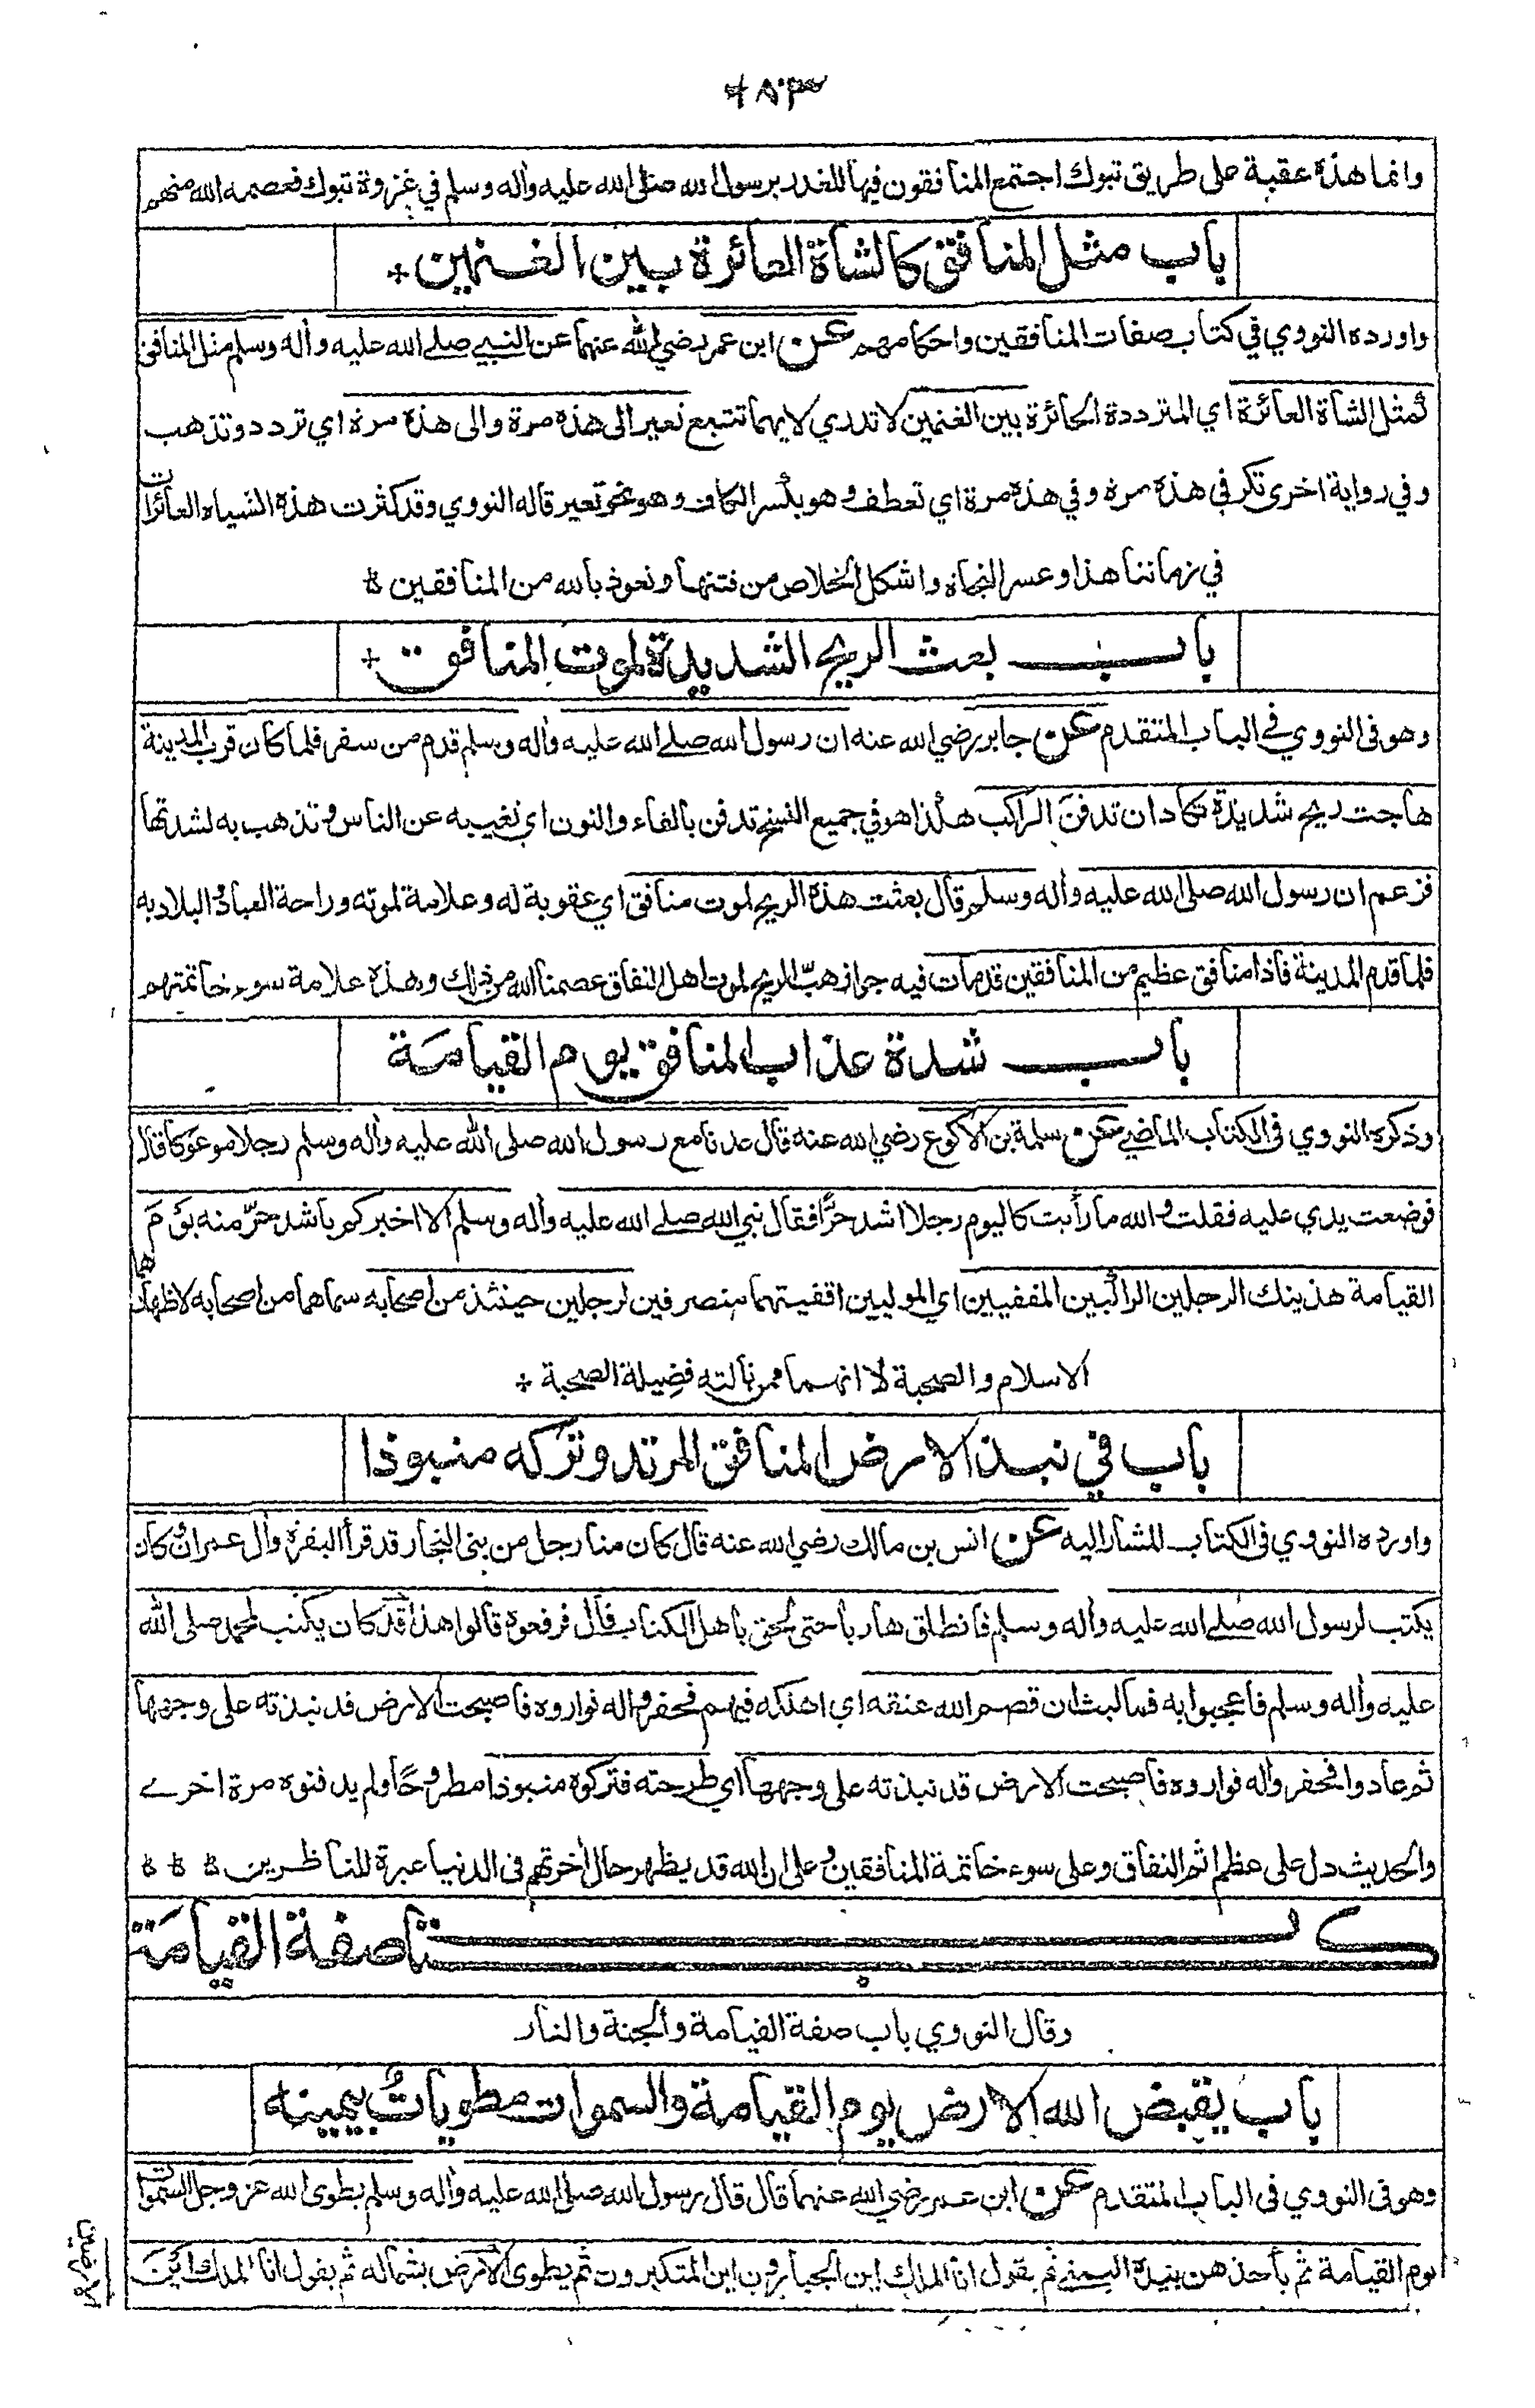 ٥٨٣
وانما هذه عقبة على طريق تبوك اجتمع المنافقون فيها للغدر برسول الله صلى الله عليه وأله وسلم في غزوة تبوك فعصمه الله منهم
باب مثل المنافق كالشاة العائرة بين الغنمين
واورده النووي في كتاب صفات المنافقين واحكامهم عن ابن عمر رضي الله عنهما عن النبي صلے الله عليه وأله وسلم مثل المنافق
كمثل الشاة العائرة اي المترددة الحائرة بين الغنمين لا تدري لايهما تتبع تعير الى هذه مرة والى هذه مرة اي تردد وتذهب
وفي رواية اخرى تكر في هذه مرة وفي هذه مرة اي تعطف وهو بكسر الكاف وهو نحو تعير قاله النووي وقد كثرت هذه الشياه العائرات
في زماننا هذا وعسر النجاة واشكل الخلاص من فتنها ونعوذ بالله من المنافقين
باب بعث الريح الشديدة لموت المنافق
وهو فى النووي في الباب المتقدم عن جابر رضي الله عنه ان رسول الله صلے الله عليه وأله وسلم قدم من سفر فلما كان قرب المدينة
هاجت ريح شديدة تكاد ان تدفن الراكب هكذا هو في جميع النسخ تدفن بالفاء والنون اي تغيب به عن الناس وتذهب به لشدتها
فزعم ان رسول الله صلى الله عليه وأله وسلم قال بعثت هذه الريح لموت منافق اي عقوبة له وعلامة لموته وراحة العباد والبلاد به
فلما قدم المدينة فاذا منافق عظيم من المنافقين قد مات فيه جواز هبّ الريح لموت اهل النفاق عصمنا الله من ذلك وهذه علامة سوء خاتمتهم
باب شدة عذاب المنافق يوم القيامة
وذكره النووي فى الكتاب الماضي عن سلمة بن الاكوع رضي الله عنه قال عدنا مع رسول الله صلى الله عليه وأله وسلم رجلا موعوكا قال
فوضعت يدي عليه فقلت والله ما رأيت كاليوم رجلا اشد حرًّا فقال نبي الله صلے الله عليه وأله وسلم الا اخبركم باشد حرّ منه يوم
القيامة هذينك الرجلين الراكبين المقفيين اي الموليين اقفيتهما منصرفين لرجلين حينئذ من اصحابه سماهما من اصحابه لاظهارهما
الاسلام والصحبة لا انهما ممن نالته فضيلة الصحبة
باب في نبذ الارض المنافق المرتد وتركه منبوذا
واورده النووي فى الكتاب المشار اليه عن انس بن مالك رضي الله عنه قال كان منا رجل من بنى النجار قد قرأ البقرة وأل عمران وكان
يكتب لرسول الله صلے الله عليه وأله وسلم فانطلق هاربا حتى لحق باهل الكتاب قال فرفعوه قالوا هذا قد كان يكتب لمحمد صلى الله
عليه وأله وسلم فاعجبوا به فما لبث ان قصم الله عنقه اي اهلكه فيهم فحفروا له فواروه فاصبحت الارض قد نبذته على وجهها
ثم عادوا فحفروا له فواروه فاصبحت الارض قد نبذته على وجهها اي طرحته فتركوه منبوذا مطروحًا ولم يدفنوه مرة اخرے
والحديث دل على عظم اثم النفاق وعلى سوء خاتمة المنافقين وعلى ان الله قد يظهر حال أخرتهم فى الدنيا عبرة للناظرين
كتاب صفة القيامة
وقال النووي باب صفة القيامة والجنة والنار
باب يقبض الله الارض يوم القيامة والسموات مطويات بيمينه
وهو فى النووي فى الباب المتقدم عن ابن عمر رضي الله عنهما قال قال رسول الله صلى الله عليه وأله وسلم يطوى الله عز وجل السموات
يوم القيامة ثم يأخذهن بيده اليمنى ثم يقول انا الملك اين الجبارون اين المتكبرون ثم يطوى الارض بشماله ثم يقول انا الملك اين